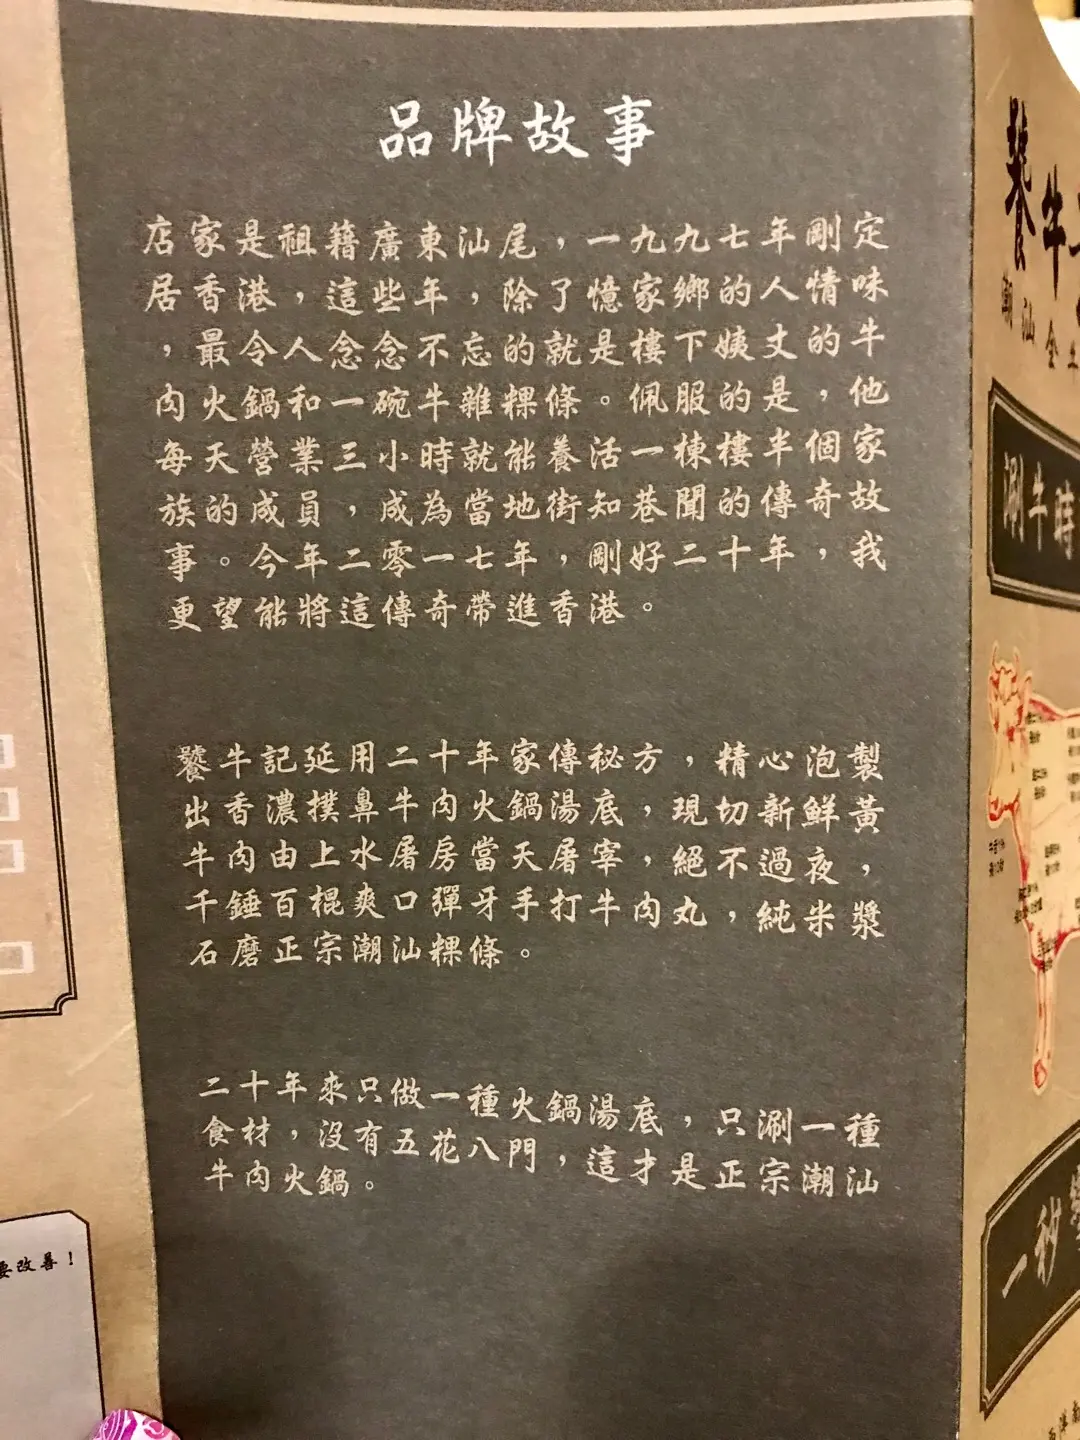 品牌故事
店家是祖籍廣東汕尾，一九九七年剛定
居香港，這些年，除了憶家鄉的人情味
，最令人念念不忘的就是樓下姨丈的牛
肉火鍋和一碗牛雜粿條。佩服的是，他
每天營業三小時就能養活一棟樓半個家
族的成員，成為當地街知巷聞的傳奇故
事。今年二零一七年，剛好二十年，我
更望能將這傳奇帶進香港。
饕牛記延用二十年家傳秘方，精心泡製
出香濃撲鼻牛肉火鍋湯底，現切新鮮黃
牛肉由上水屠房當天屠宰，絕不過夜，
千錘百棍爽口彈牙手打牛肉丸，純米漿
石磨正宗潮汕粿條。
二十年來只做一種火鍋湯底，只涮一種
食材，沒有五花八門，這才是正宗潮汕
牛肉火鍋。
要改善！
饕牛
潮汕全牛
涮牛時
一秒